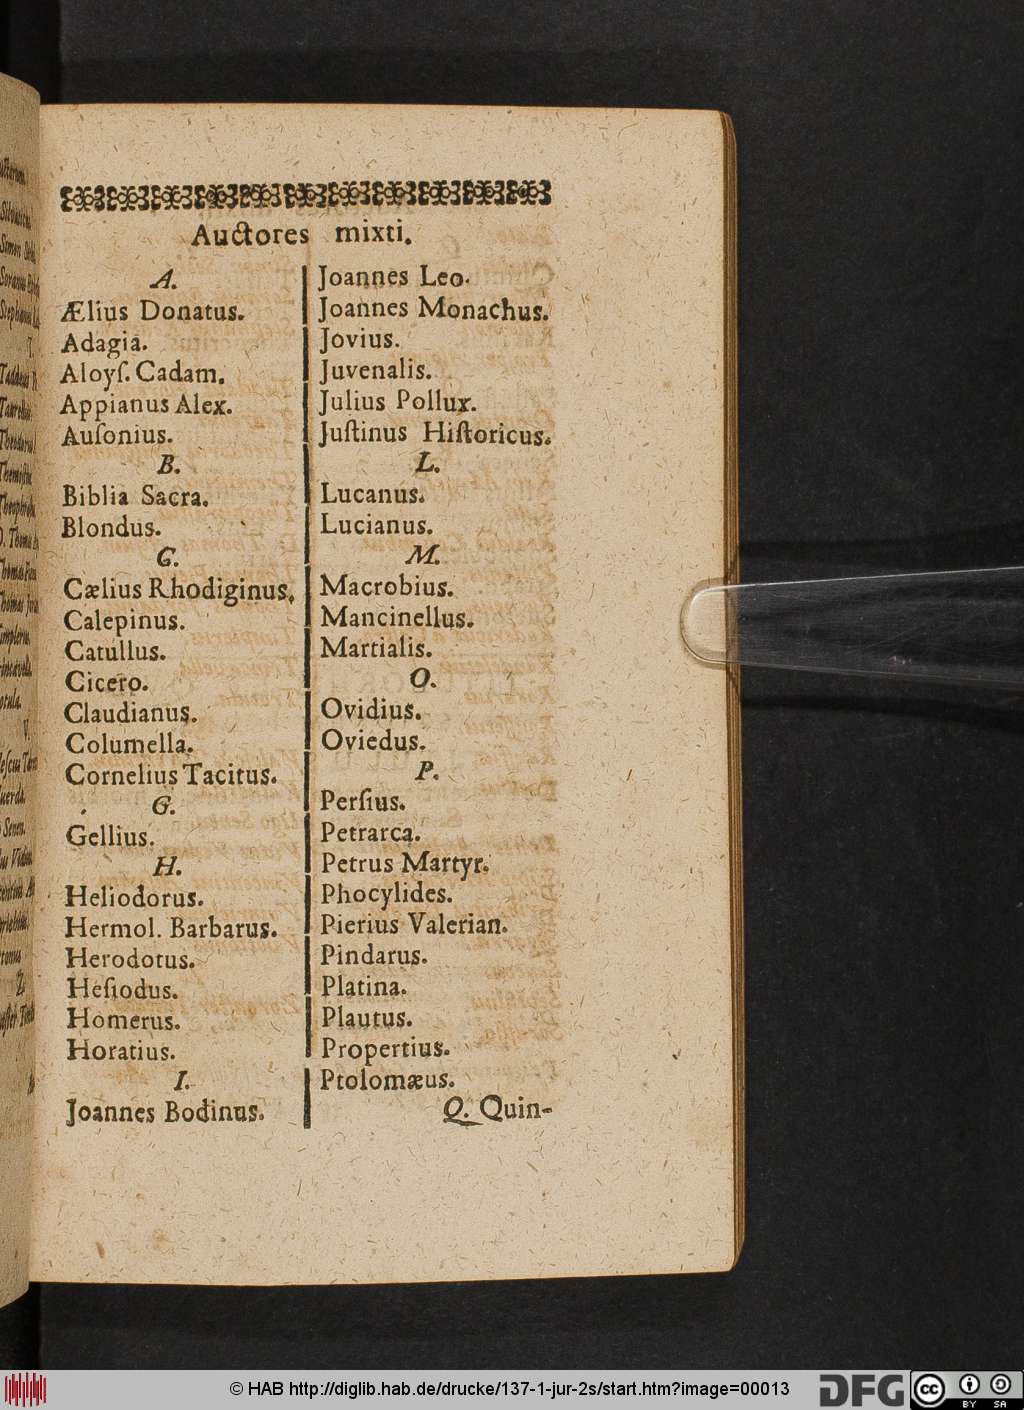 Auctores mixti.
A.
Ælius Donatus.
Adagia.
Aloyſ. Cadam.
Appianus Alex.
Auſonius.
B.
Biblia Sacra.
Blondus.
C.
Cælius Rhodiginus.
Calepinus.
Catullus.
Cicero.
Claudianus.
Columella.
Cornelius Tacitus.
G.
Gellius.
H.
Heliodorus.
Hermol. Barbarus.
Herodotus.
Heſiodus.
Homerus.
Horatius.
I.
Joannes Bodinus.
Joannes Leo.
Joannes Monachus.
Jovius.
Juvenalis.
Julius Pollux.
Juſtinus Hiſtoricus.
L.
Lucanus.
Lucianus.
M.
Macrobius.
Mancinellus.
Martialis.
O.
Ovidius.
Oviedus.
P.
Perſius.
Petrarca.
Petrus Martyr.
Phocylides.
Pierius Valerian.
Pindarus.
Platina.
Plautus.
Propertius.
Ptolomæus.
Q. Quin-
© HAB http://diglib.hab.de/drucke/137-1-jur-2s/start.htm?image=00013
DFG
cc
BY
SA